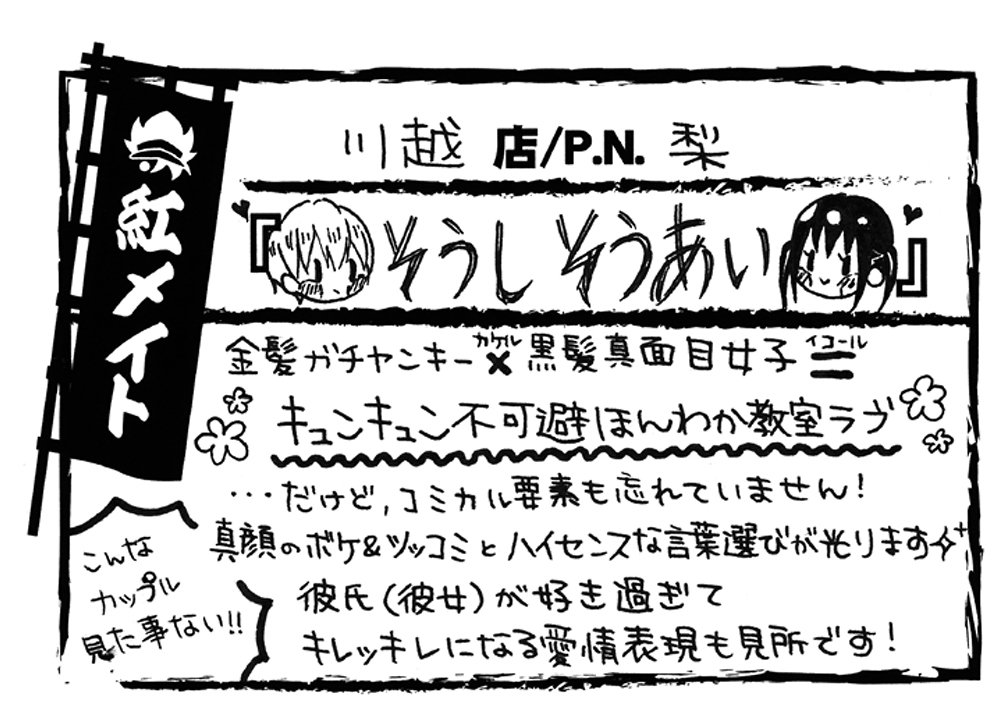 紅メイト
川越 店/P.N. 梨
『そうしそうあい』
金髪ガチヤンキー×黒髪真面目女子=
カケル
イコール
キュンキュン不可避ほんわか教室ラブ
…だけど,コミカル要素も忘れていません!
真顔のボケ&ツッコミとハイセンスな言葉選びが光ります
彼氏(彼女)が好き過ぎて
キレッキレになる愛情表現も見所です!
こんな
カップル
見た事ない!!